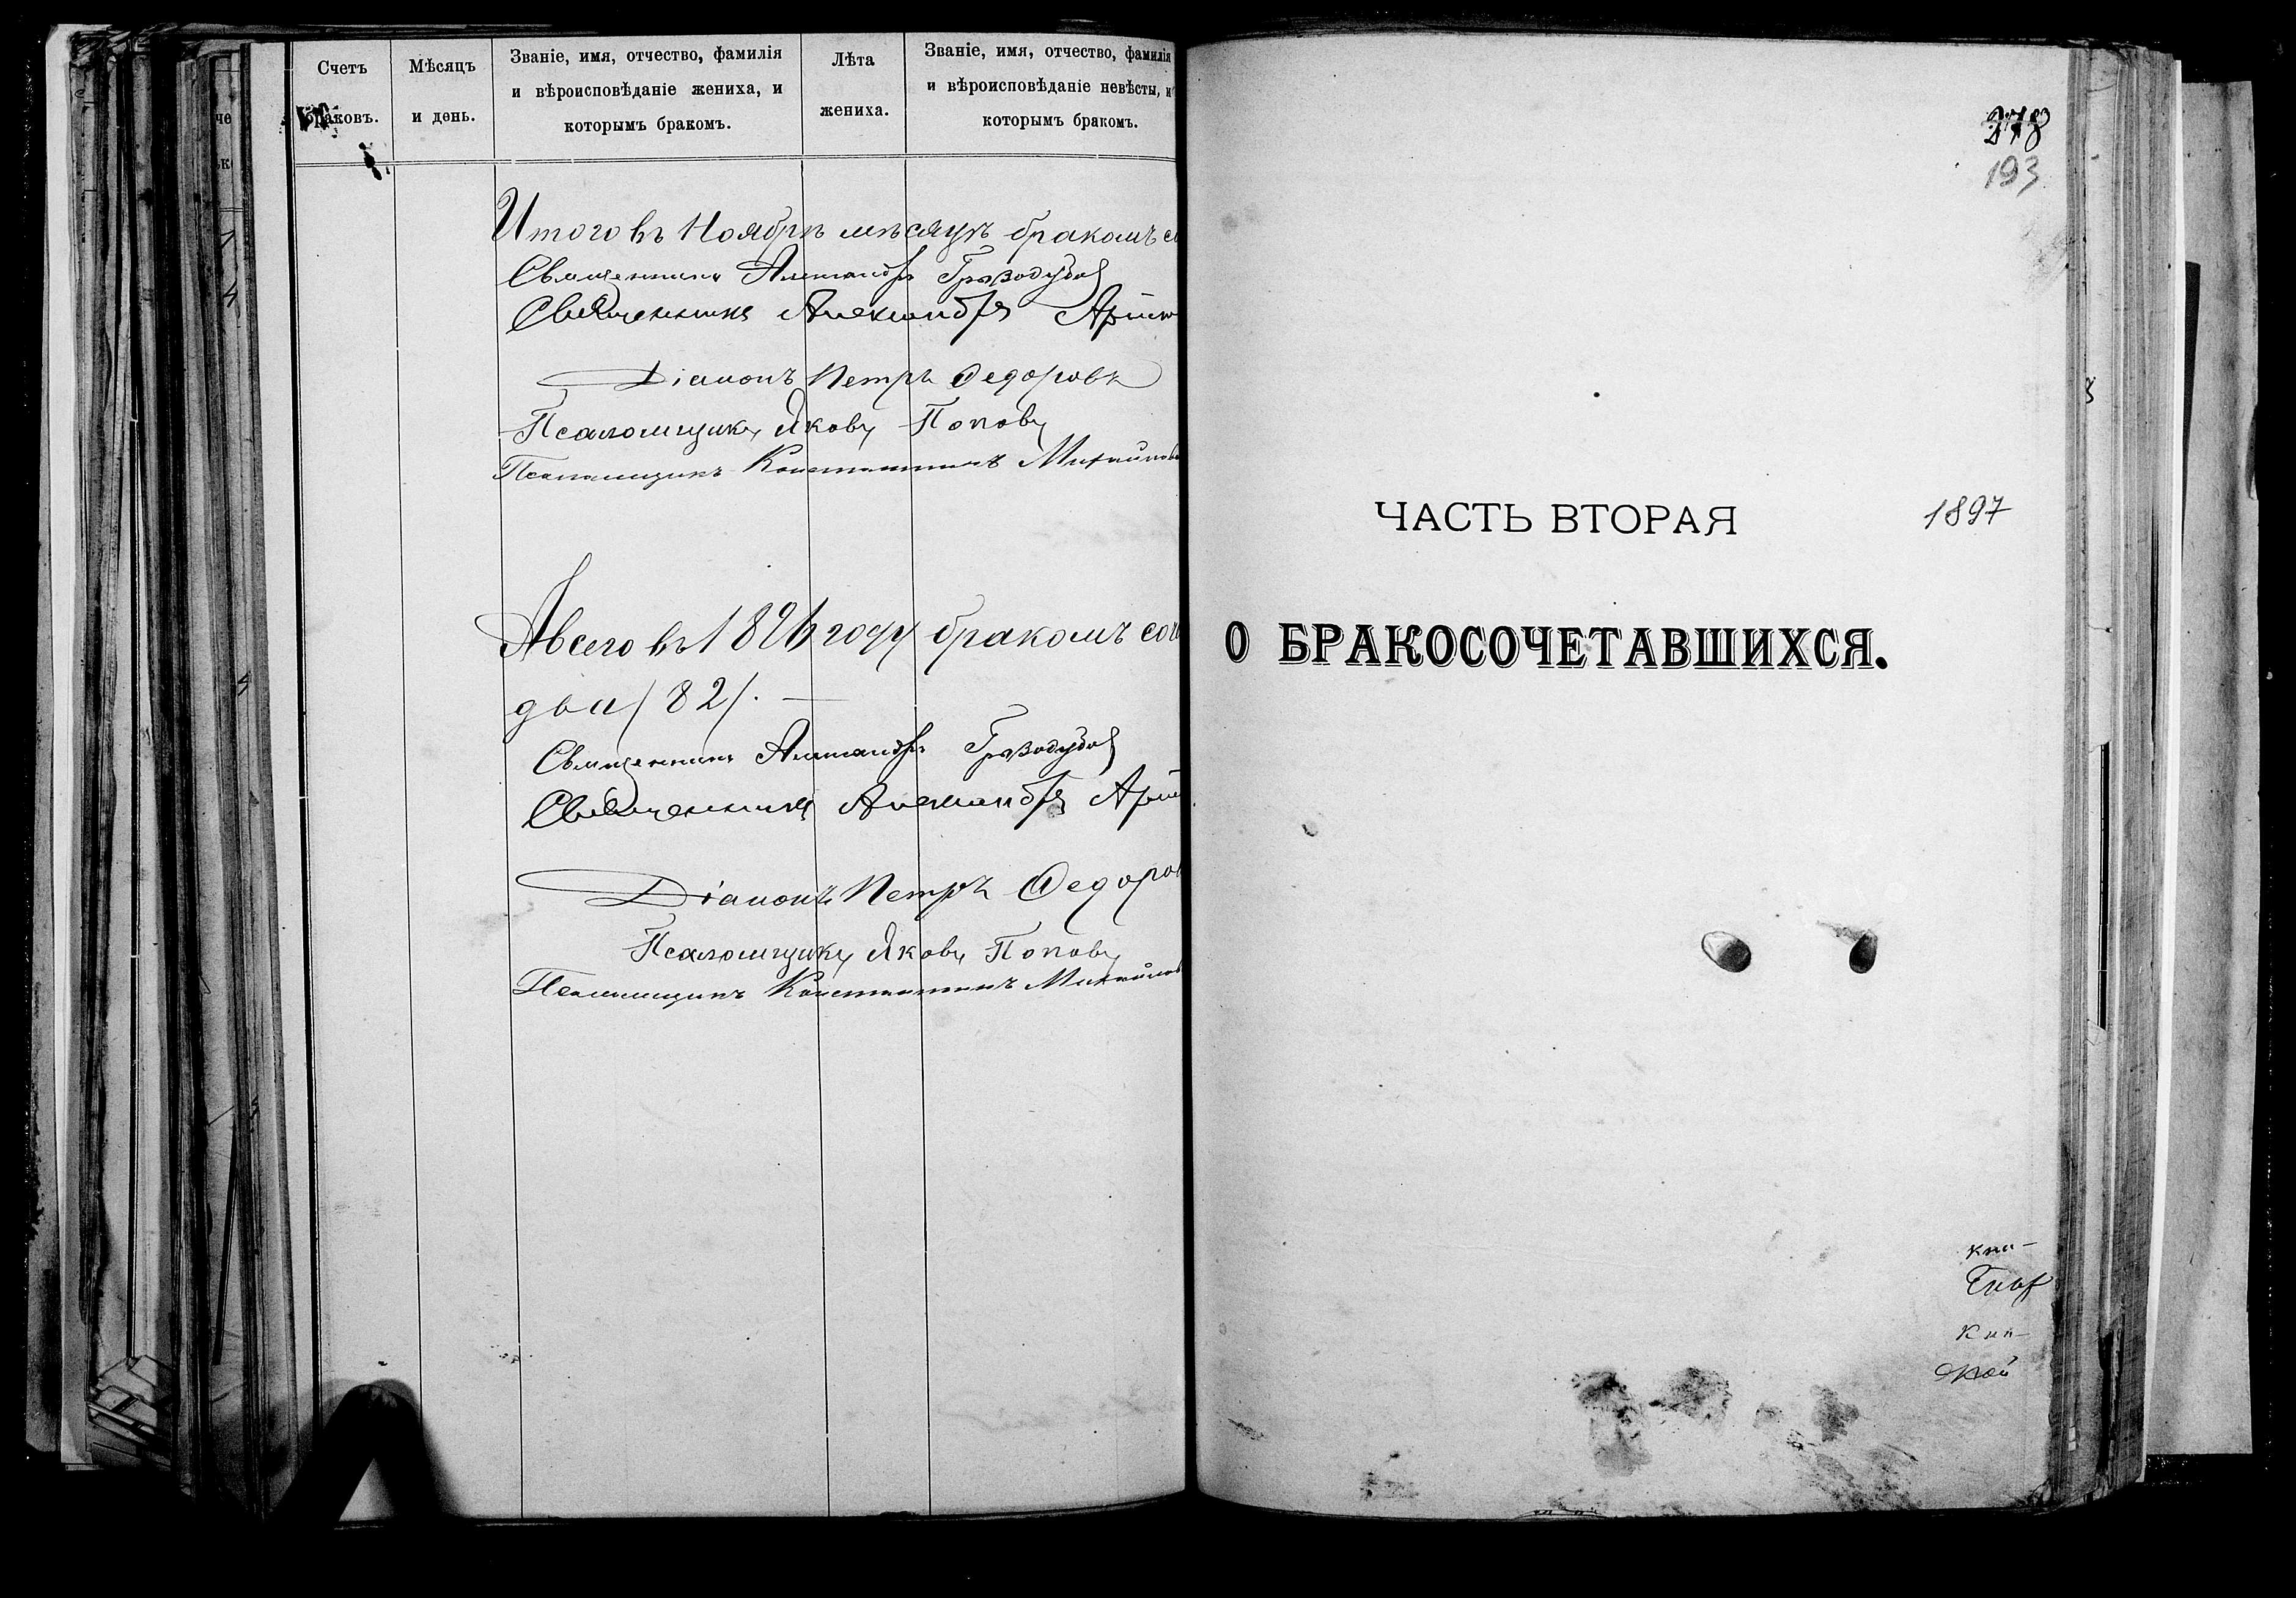 Счетъ
браковъ.
Мѣсяцъ
и день.
Званіе, имя, отчество, фамилія
и вѣроисповѣданіе жениха, и
которымъ бракомъ.
Лѣта
жениха.
Званіе, имя, отчество, фамилія
и вѣроисповѣданіе невѣсты, и
которымъ бракомъ.
Итого въ Ноябрѣ мѣсяцѣ бракомъ со
Священникъ Александръ
Священникъ Александръ Арист
Діаконъ Петръ Ѳедоровъ
Псаломщикъ Яковъ Поповъ
Псаломщикъ Константинъ Михайлов
А всего въ 1896 году бракомъ соч
два /82/. —
Священникъ Александръ
Священникъ Александръ Арис
Діаконъ Петръ Ѳедоров
Псаломщикъ Яковъ Поповъ
Псаломщикъ Константинъ Михайлов
278
193
ЧАСТЬ ВТОРАЯ
1897
О БРАКОСОЧЕТАВШИХСЯ.
кни-
кни-
ской